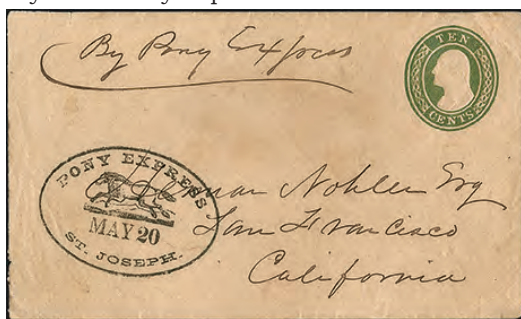 By Pony Express
TEN
CENTS
PONY EXPRESS
MAY 20
ST. JOSEPH.
Nohlen Esq
San Francisco
California